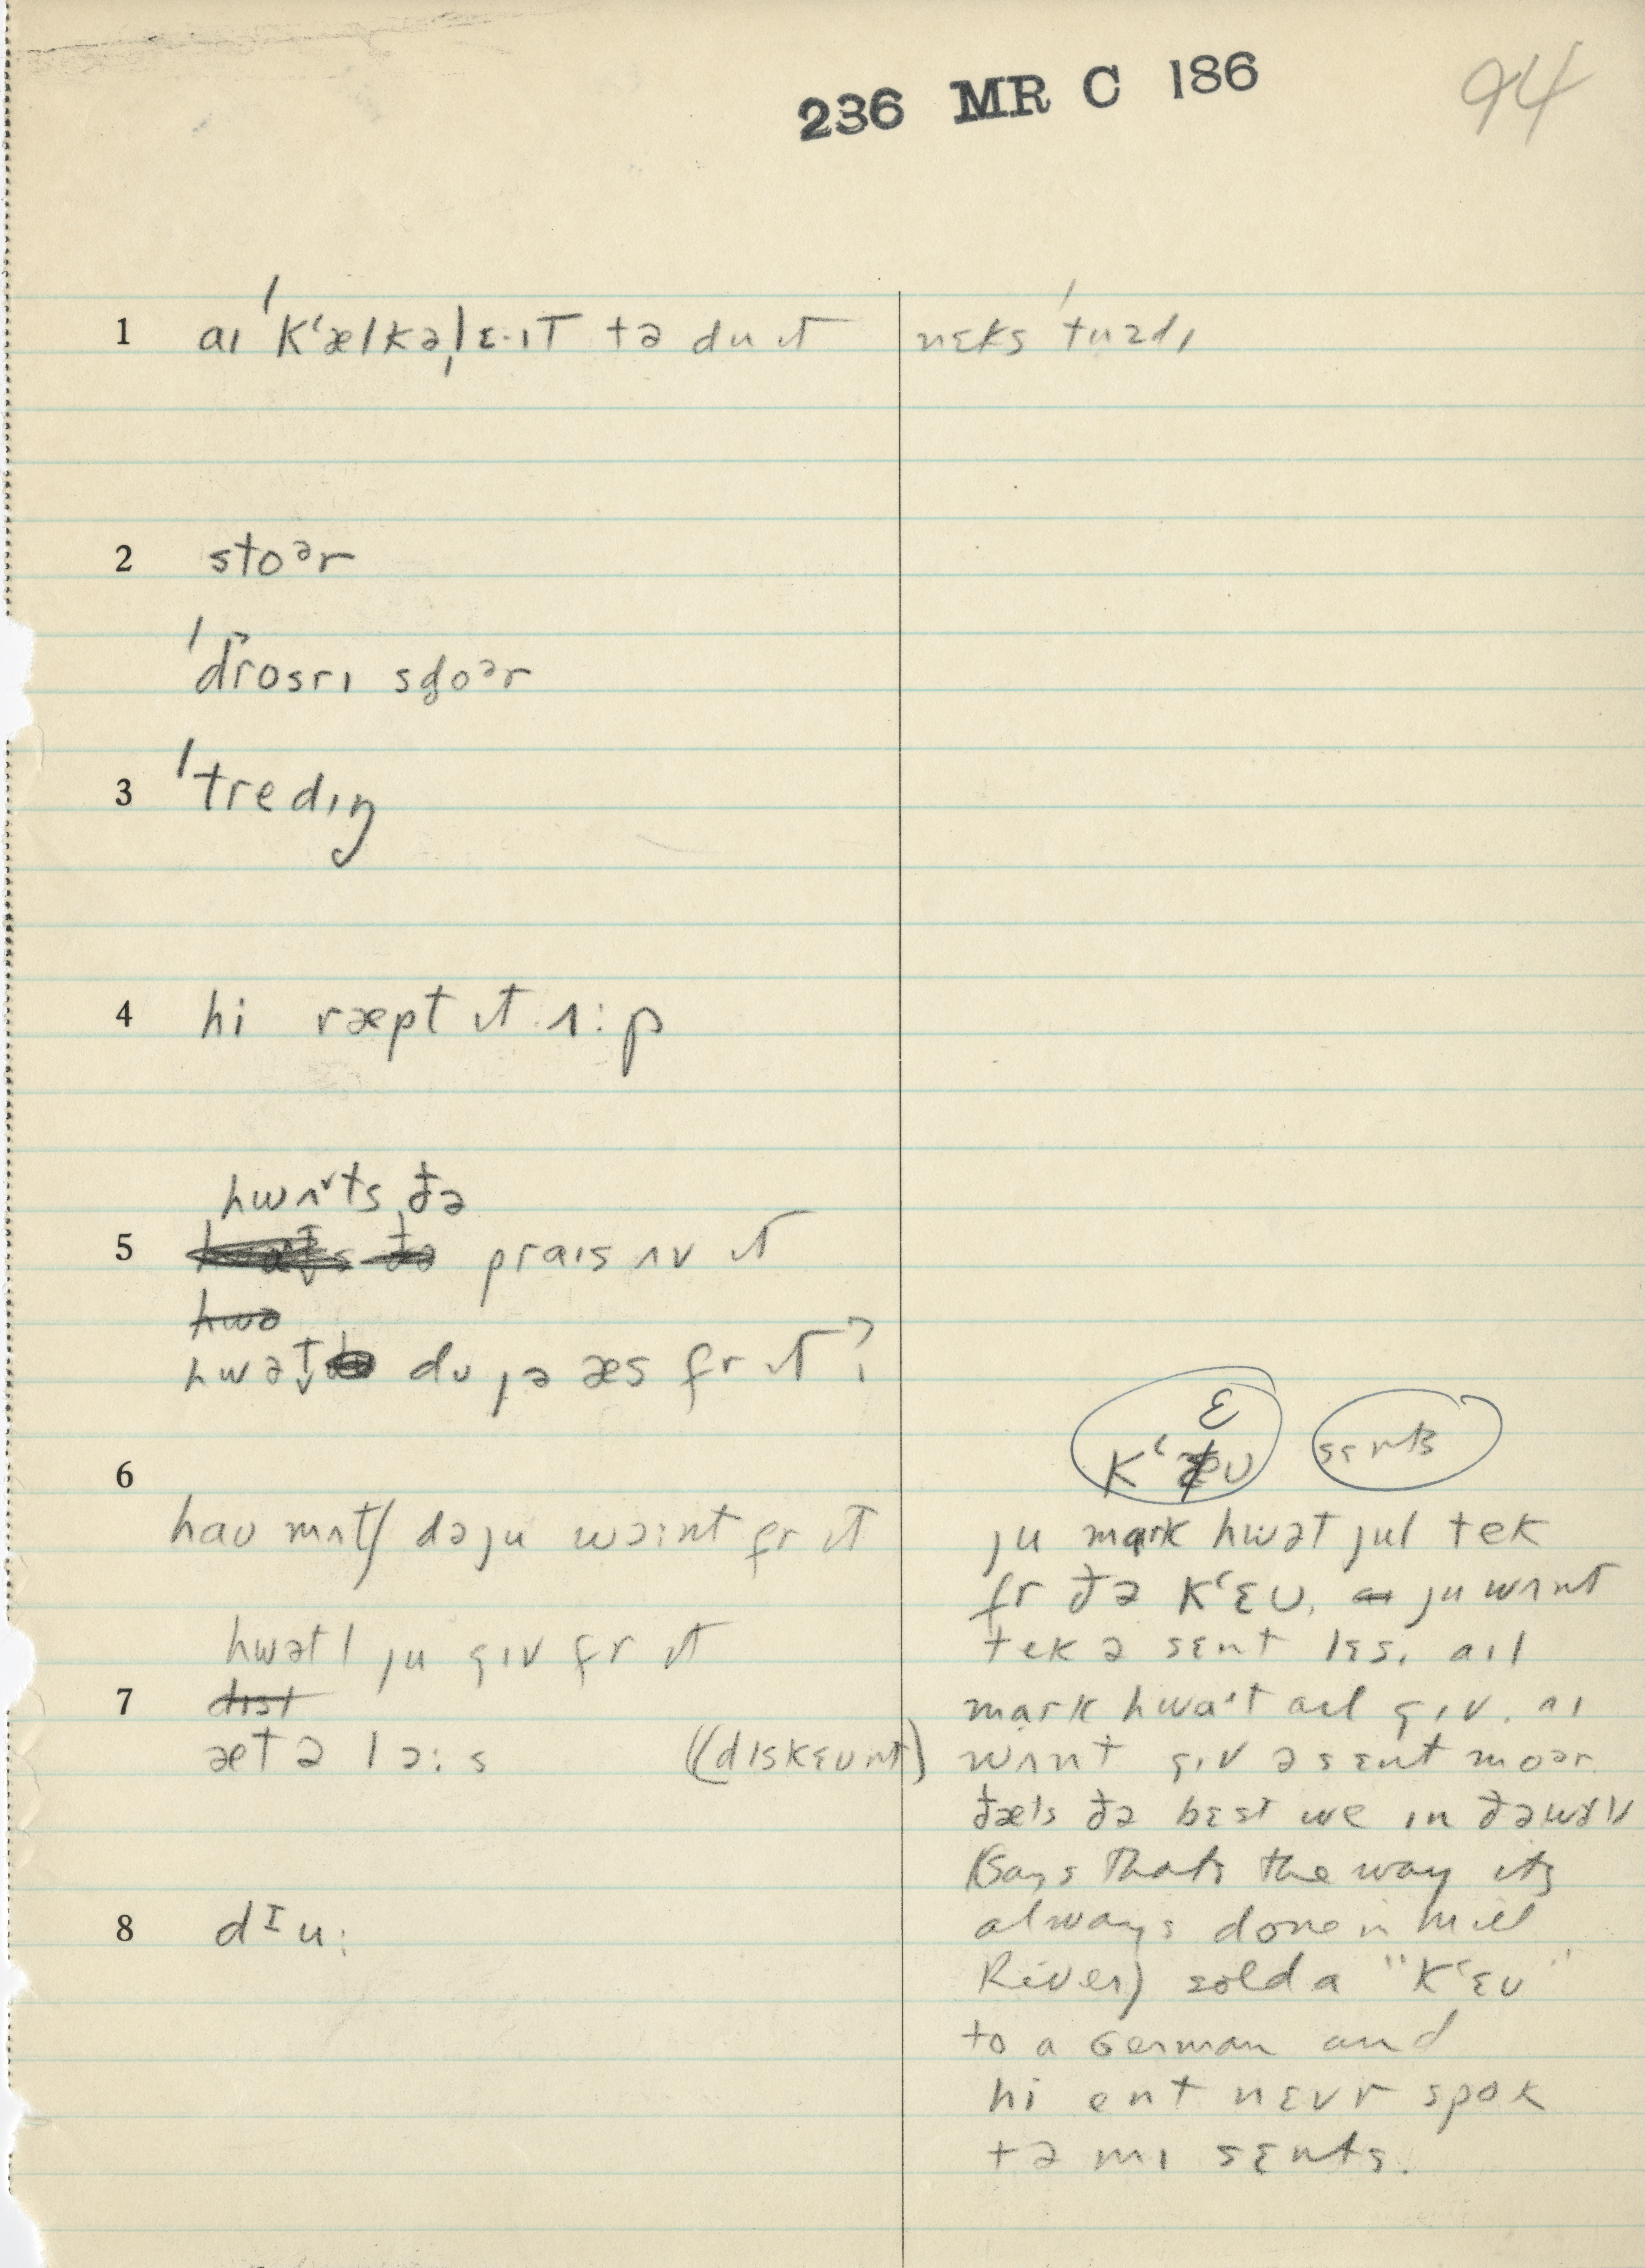 236 MR C 186
94
1 aɪ ˈkʻælkəˌlɛ·ɪt tə du ɪt
nɛks ˈtuzdɪ
2 stoᵊr
ˈdrosrɪ sd̥oᵊr
3 ˈtredɪŋ
4 hi ræpt ɪt ʌ:p
hwʌ˅ts ðə
5 praɪs ʌv ɪt
hwə
hwət̬ du jə æs fr ɪt?
6
hau mʌtʃ dəju wɔ:nt fr ɪt
hwətl ju gɪv fr ɪt
7 dɪsɪ
æt ə lɔ:s ((dɪskɛunt)
8 dᴵu:
kʻɛʊ sɛnts
ju mark hwət jul tek
fr ðə kʻɛʊ. ju wʌnt
tek ə sɛnt lɛs. aɪl
mark hwaˑt aɪl gɪv. aɪ
wʌnt gɪv ə sɛnt moər.
ðæts ðə bɛst we ɪn ðə
(Says thats the way its
always done in Mill
River) sold a "kʻɛʊ"
to a German and
hi ent nɛvr spok
tə mɪ sɛnts.